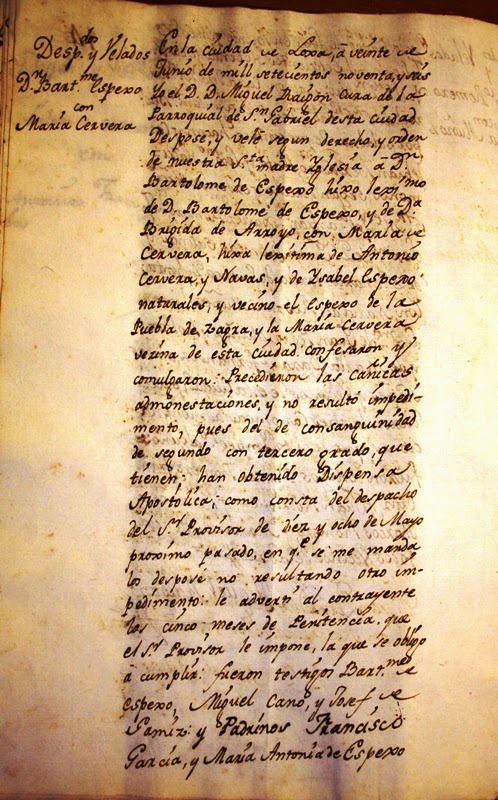 Desp.dos y Velados
Dn. Bart.me Espexo
con
María Cervera
En la ciudad de Loxa, à veinte de
Junio de mill setecientos noventa, y seis
Yo el D. D. Miguel Raÿòn Cura de la
Parroquial de Sn. Gabriel desta ciudad
Desposè, y velè segun derecho, y orden
de nuestra Sta. madre Yglesia à Dn.
Bartolome de Espexo hixo lexmo
de D. Bartolome de Espexo, y de Da.
Brigida de Arroyo, con Maria de
Cervera, hixa lexitima de Antonio
Cervera, y Navas, y de Ysabel Espexo
naturales, y vecino el Espexo de la
Puebla de Zagra, y la María Cervera
vezina de esta ciudad: confesaron y
comulgaron: Precedieron las Cañicas
admonestaciones, y no resultò impedi-
mento, pues del de consanguinidad
de segundo con tercero grado, que
tienen, han obtenido Dispensa
Apostolica, como consta del despacho
del Sr. Provisor de diez y ocho de Mayo
proximo pasado, en q.e se me manda
los despose no resultando otro im-
pedimento: le advertí al contrayente
los cinco meses de Penitencia, que
el Sr. Provisor le impone, la que se obligò
à cumplir: fueron testigos Bart.me de
Espexo, Miguel Cano, y Josef de
Gamiz: y Padrinos Francisco
García, y María Antonia de Espexo